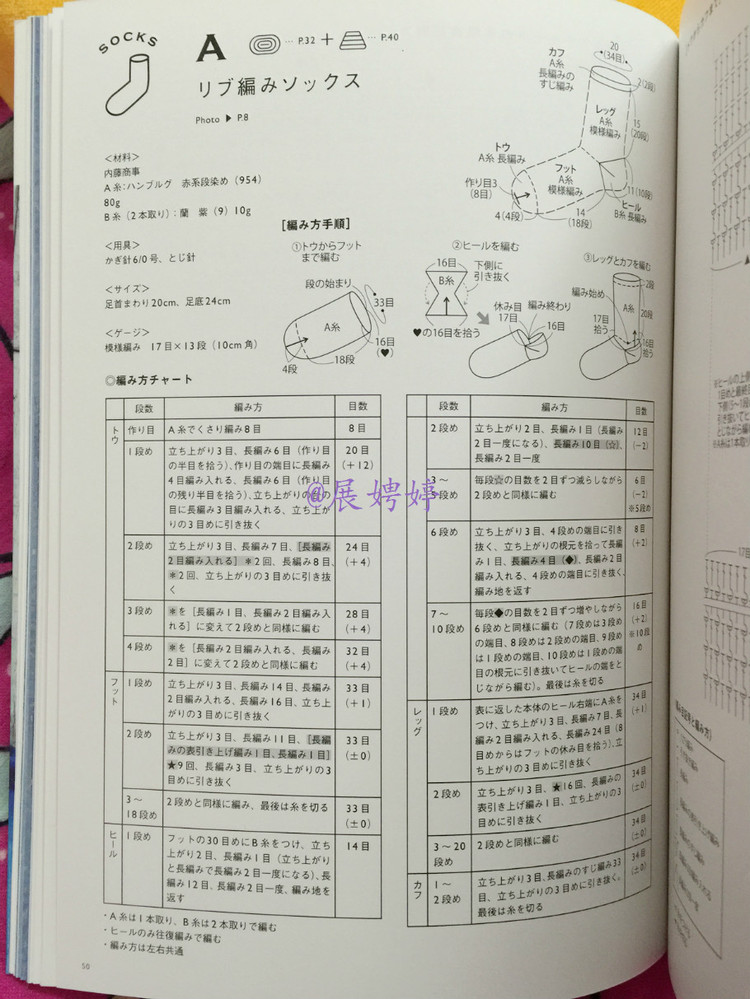 SOCKS
A
… P.32 + … P.40
リブ編みソックス
Photo ▶ P.8
<材料>
内藤商事
A糸:ハンブルグ 赤系段染め(954)
80g
B糸(2本取り):蘭 紫(9)10g
<用具>
かぎ針6/0号、とじ針
<サイズ>
足首まわり20cm、足底24cm
<ゲージ>
模様編み 17目×13段(10cm角)
カフ
A糸
長編みの
すじ編み
20
(34目)
2(2段)
レッグ
A糸
模様編み
15
(20段)
トウ
A糸 長編み
フット
A糸
模様編み
作り目3
(8目)
4(4段)
14
(18段)
11(10段)
ヒール
B糸 長編み
[編み方手順]
①トウからフット
まで編む
段の始まり
33目
A糸
16目
(♥)
4段
18段
②ヒールを編む
16目
下側に
引き抜く
B糸
♥の16目を拾う
休み目
17目
編み終わり
16目
③レッグとカフを編む
2段
編み始め
20段
A糸
17目
拾う
16目
拾う
◎編み方チャート
段数
編み方
目数
トウ
作り目
A糸でくさり編み8目
8目
1段め
立ち上がり3目、長編み6目(作り目
の半目を拾う)、作り目の端目に長編み
4目編み入れる、長編み6目(作り目
の残り半目を拾う)、立ち上がりの目の
目に長編み3目編み入れる、立ち上が
りの3目めに引き抜く
20目
(+12)
2段め
立ち上がり3目、長編み7目、[長編み
2目編み入れる]※2回、長編み8目、
※2回、立ち上がりの3目めに引き抜
く
24目
(+4)
3段め
※を[長編み1目、長編み2目編み入
れる]に変えて2段めと同様に編む
28目
(+4)
4段め
※を[長編み2目編み入れる、長編み
2目]に変えて2段めと同様に編む
32目
(+4)
フット
1段め
立ち上がり3目、長編み14目、長編み
2目編み入れる、長編み16目、立ち上
がりの3目めに引き抜く
33目
(+1)
2段め
立ち上がり3目、長編み11目、[長編
みの表引き上げ編み1目、長編み1目]
★9回、長編み3目、立ち上がりの3
目めに引き抜く
33目
(±0)
3〜
18段め
2段めと同様に編み、最後は糸を切る
33目
(±0)
ヒール
1段め
フットの30目めにB糸をつけ、立ち
上がり2目、長編み1目(立ち上がり
と長編みで長編み2目一度になる)、長
編み12目、長編み2目一度、編み地を
返す
14目
段数
編み方
目数
2段め
立ち上がり2目、長編み1目(長編み
2目一度になる)、長編み10目(☆)、
長編み2目一度
12目
(−2)
3〜
5段め
毎段☆の目数を2目ずつ減らしながら
2段めと同様に編む
6目
(−2)
※5段め
6段め
立ち上がり3目、4段めの端目に引き
抜く、立ち上がりの根元を拾って長編
み1目、長編み4目(◆)、長編み2目
編み入れる、4段めの端目に引き抜く、
編み地を返す
8目
(+2)
7〜
10段め
毎段◆の目数を2目ずつ増やしながら
6段めと同様に編む(7段めは3段め
の端目、8段めは2段めの端目、9段め
は1段めの端目、10段めは1段めの端
目の根元に引き抜いてヒールの端をと
じながら編む)。最後は糸を切る
16目
(+2)
※10段
め
レッグ
1段め
表に返した本体のヒール右端にA糸を
つけ、立ち上がり3目、長編み7目、長
編み2目編み入れる、長編み24目(8
目めからはフットの休み目を拾う)、立
ち上がりの3目めに引き抜く
34目
(+1)
2段め
立ち上がり3目、★16回、長編みの
表引き上げ編み1目、立ち上がりの3
目めに引き抜く
34目
(±0)
3〜20
段め
2段めと同様に編む
34目
(±0)
カフ
1〜
2段め
立ち上がり3目、長編みのすじ編み33
目、立ち上がりの3目めに引き抜く。
最後は糸を切る
34目
(±0)
・A糸は1本取り、B糸は2本取りで編む
・ヒールのみ往復編みで編む
・編み方は左右共通
50
@展娉婷
17目